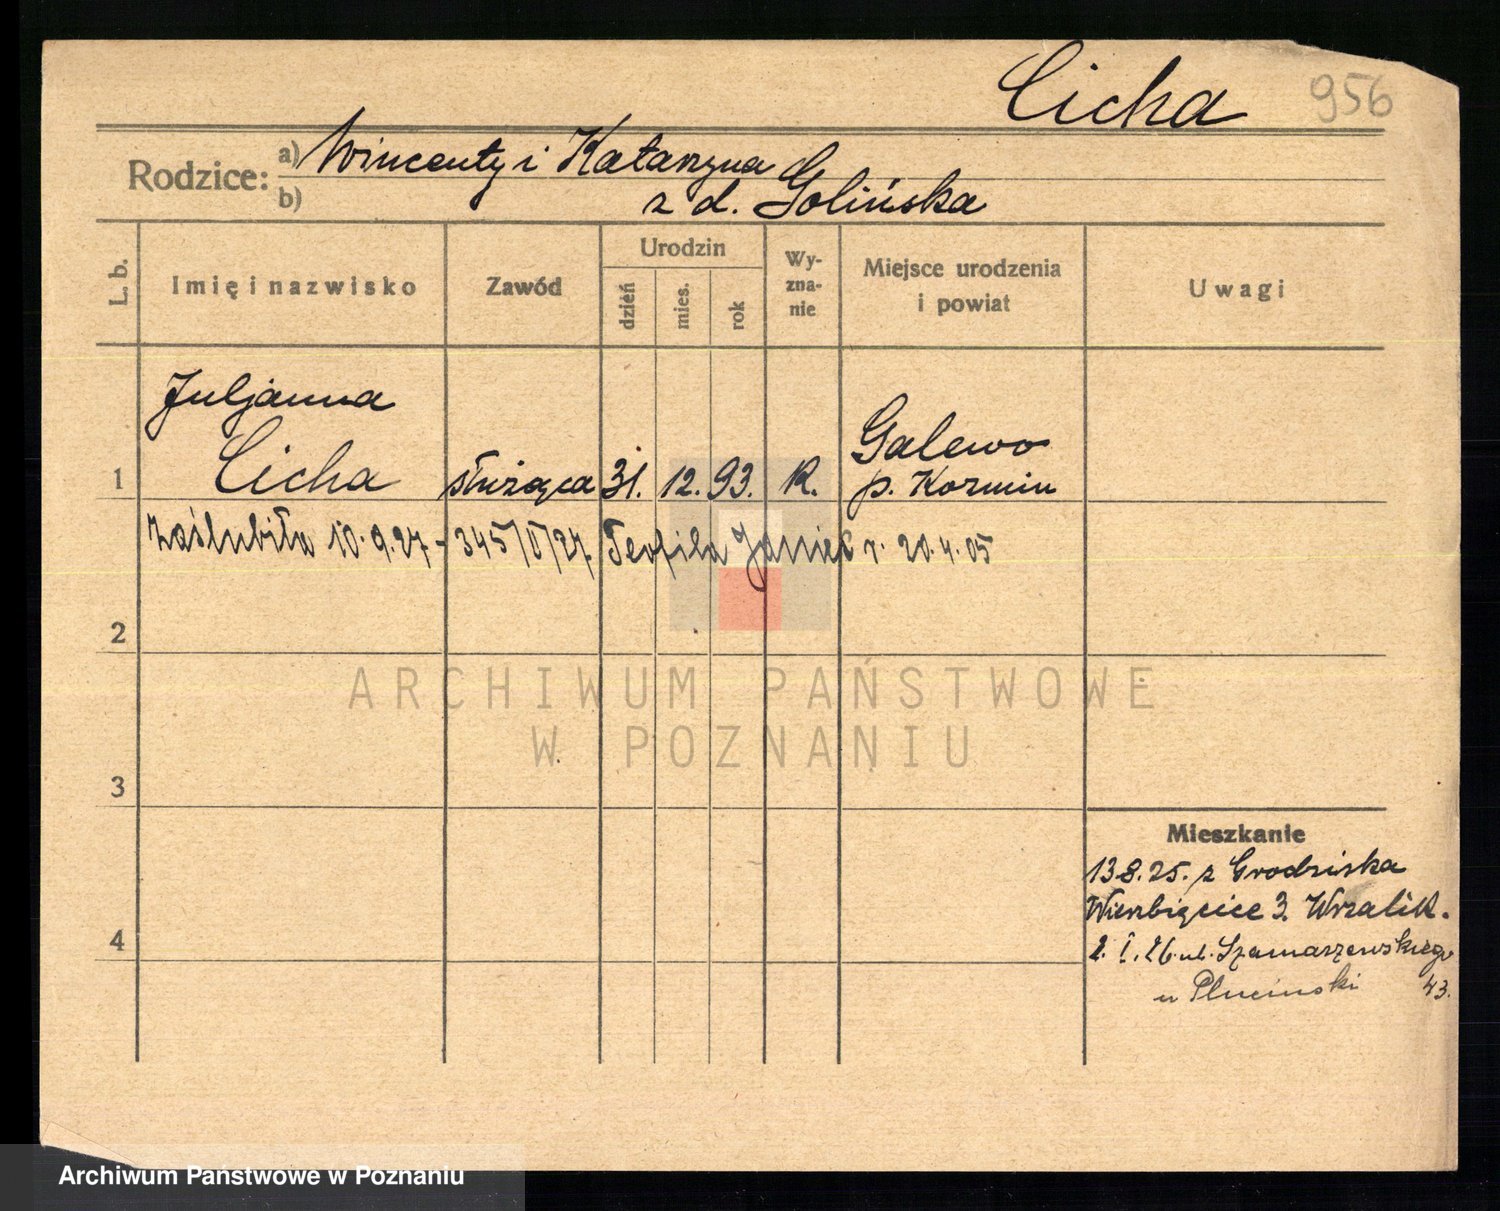 Cicha 956
Rodzice:
a) Wincenty i Katarzyna
b) z d. Golińska
L. b.
Imię i nazwisko
Zawód
Urodzin
dzień
mies.
rok
Wy-
zna-
nie
Miejsce urodzenia
i powiat
Uwagi
Juljanna
Cicha
Galewo
1 służąca 31. 12. 93. R. p. Kozmin
zaślubiła 10.9.27 - 345/0/27 Teofila r. 20.4.05
2
3
4
Mieszkanie
13.8.25. z Grodziska
Wierzbięcice 3. Wrzalik.
2. I. 26. ul. Szamarzewskiego
u Pluciński 43.
ARCHIWUM PAŃSTWOWE
W POZNANIU
Archiwum Państwowe w Poznaniu